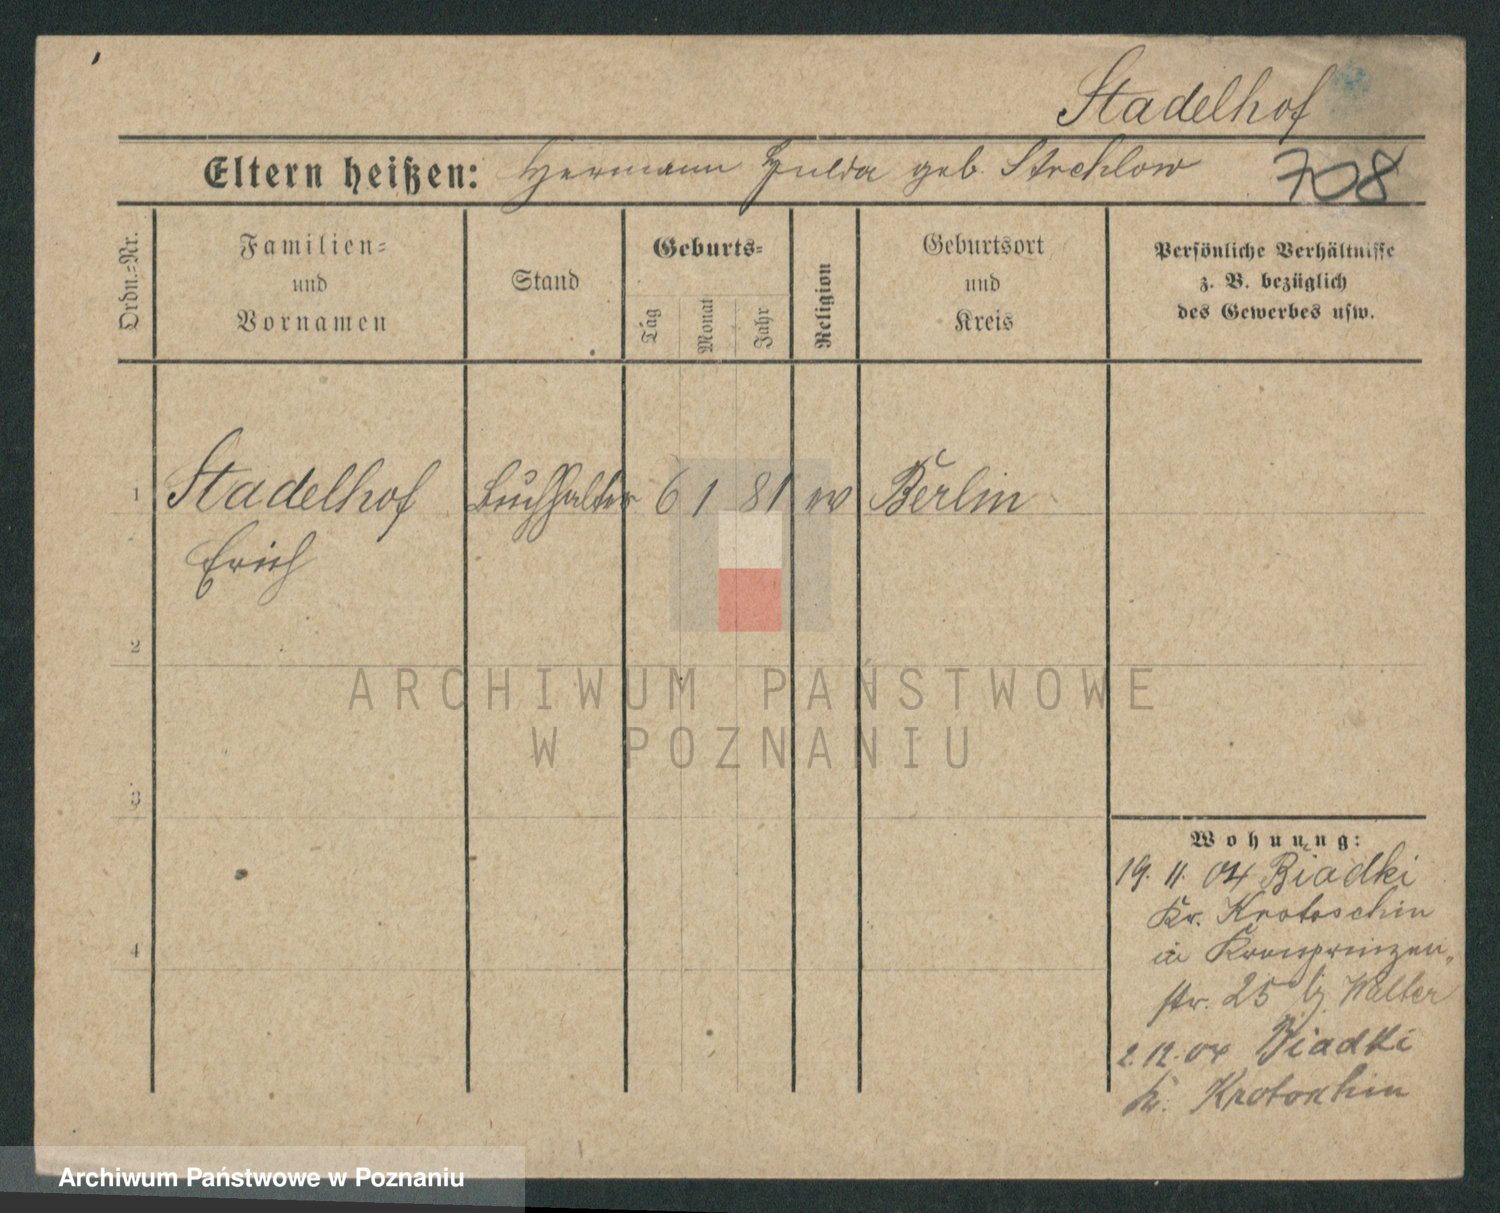 Stadelhof
Eltern heißen: Hermann Hulda geb. Strehlow 708
Ordn.=Nr.
Familien=
und
Vornamen
Stand
Geburts=
Tag
Monat
Jahr
Religion
Geburtsort
und
Kreis
Persönliche Verhältnisse
z. B. bezüglich
des Gewerbes usw.
1 Stadelhof Buchhalter 6 1 81 ev Berlin
Erich
2
3
4
Wohnung:
19. 11. 04 Biadki
Kr. Krotoschin
in Kronprinzen
str. 25 b/ Walter
2. 12. 04 Biadki
Kr. Krotoschin
ARCHIWUM PAŃSTWOWE
W POZNANIU
Archiwum Państwowe w Poznaniu